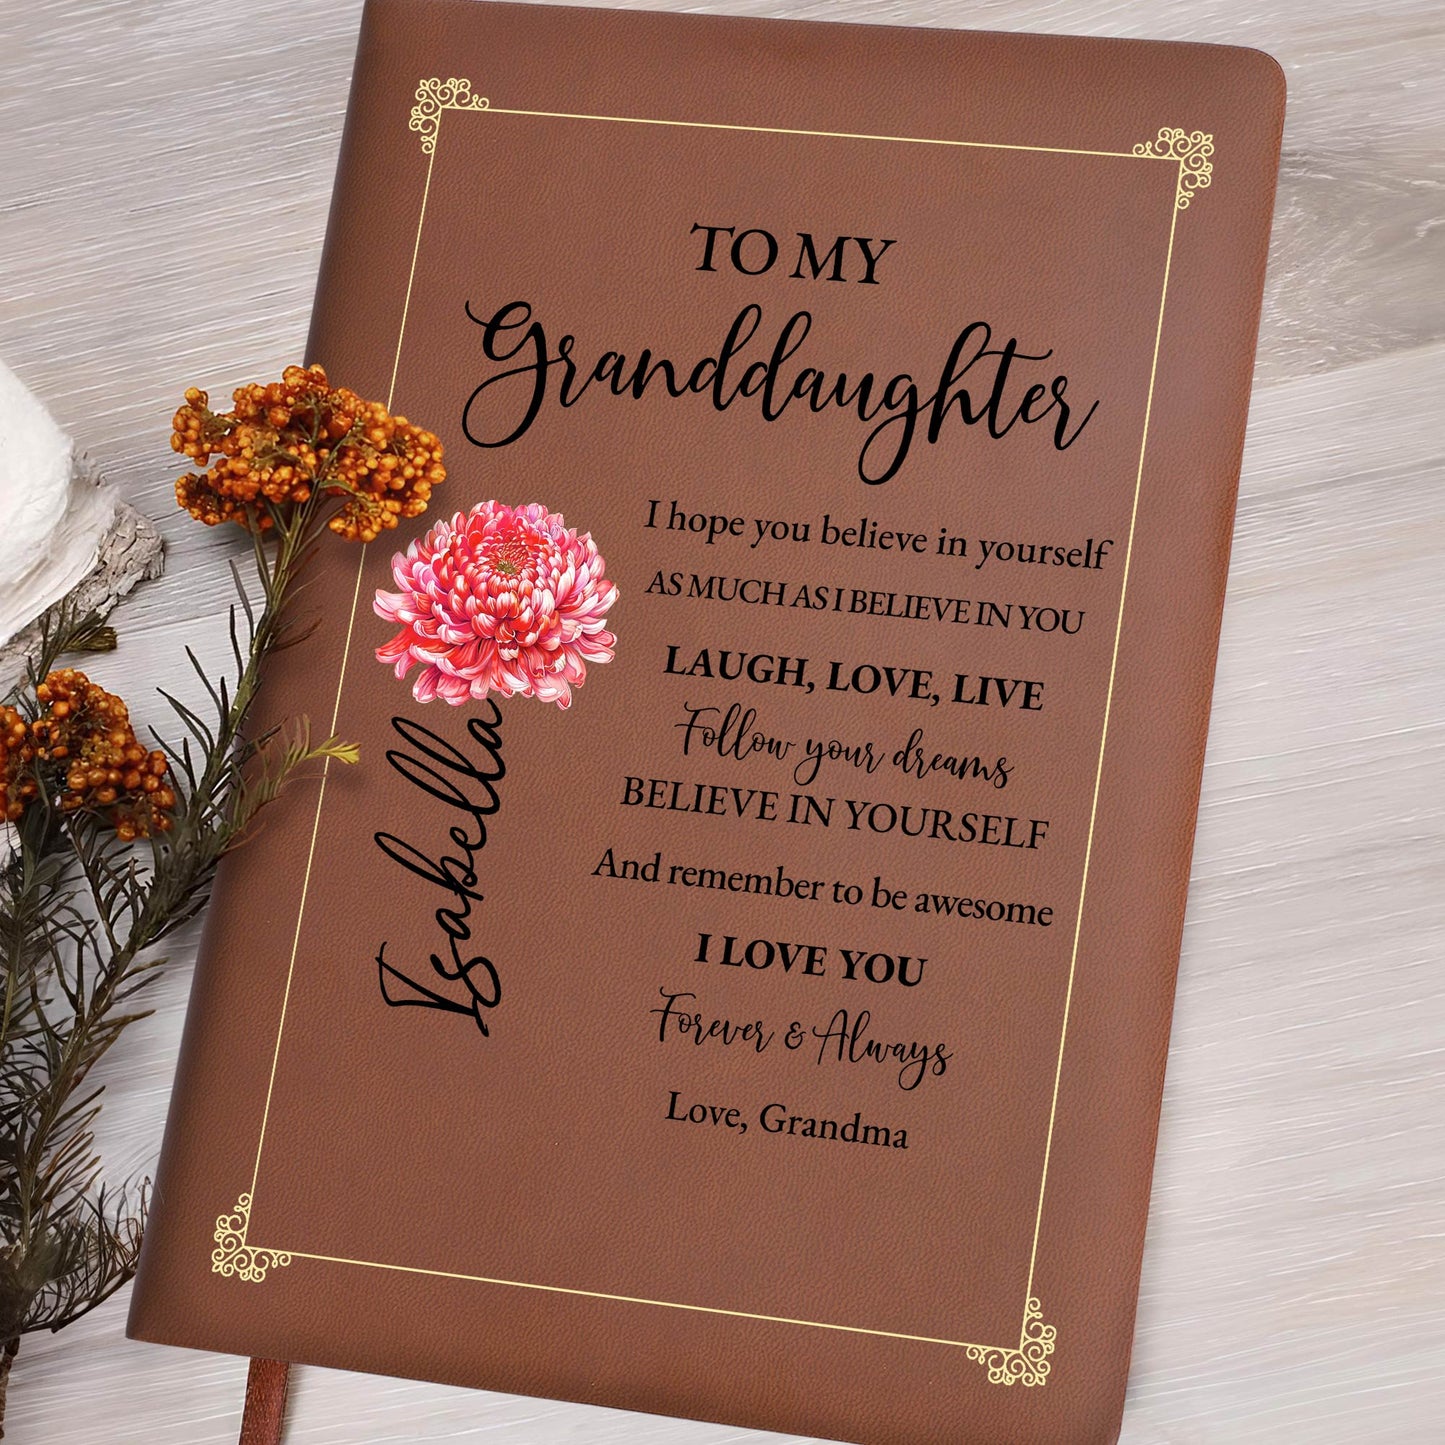 TO MY
Granddaughter
I hope you believe in yourself
AS MUCH AS I BELIEVE IN YOU
LAUGH, LOVE, LIVE
Follow your dreams
BELIEVE IN YOURSELF
And remember to be awesome
I LOVE YOU
Forever & Always
Love, Grandma
Isabella